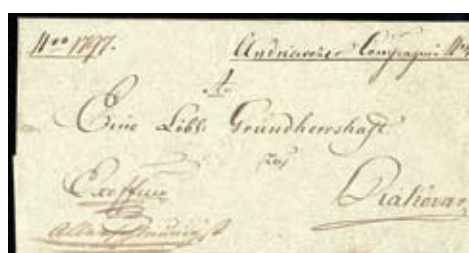 Nro 1797. Andriaveczer Compagnie No
An
Eine Löbl. Grundherrschaft
zu
Ex offo Diakovar